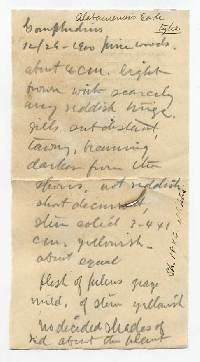 Alabamensis Earle
Type
Gomphidius
10/26-1900 pine woods.
about 4 cm. light
brown with scarcely
any reddish tinge.
gills subdistant,
tawny, becoming
darker from the
spores, not reddish
short decurrent,
stem solid 3-4 x 1
cm. yellowish
about equal
flesh of pileus gray
mild, of stem yellowish
no decided shades of
red about the plant